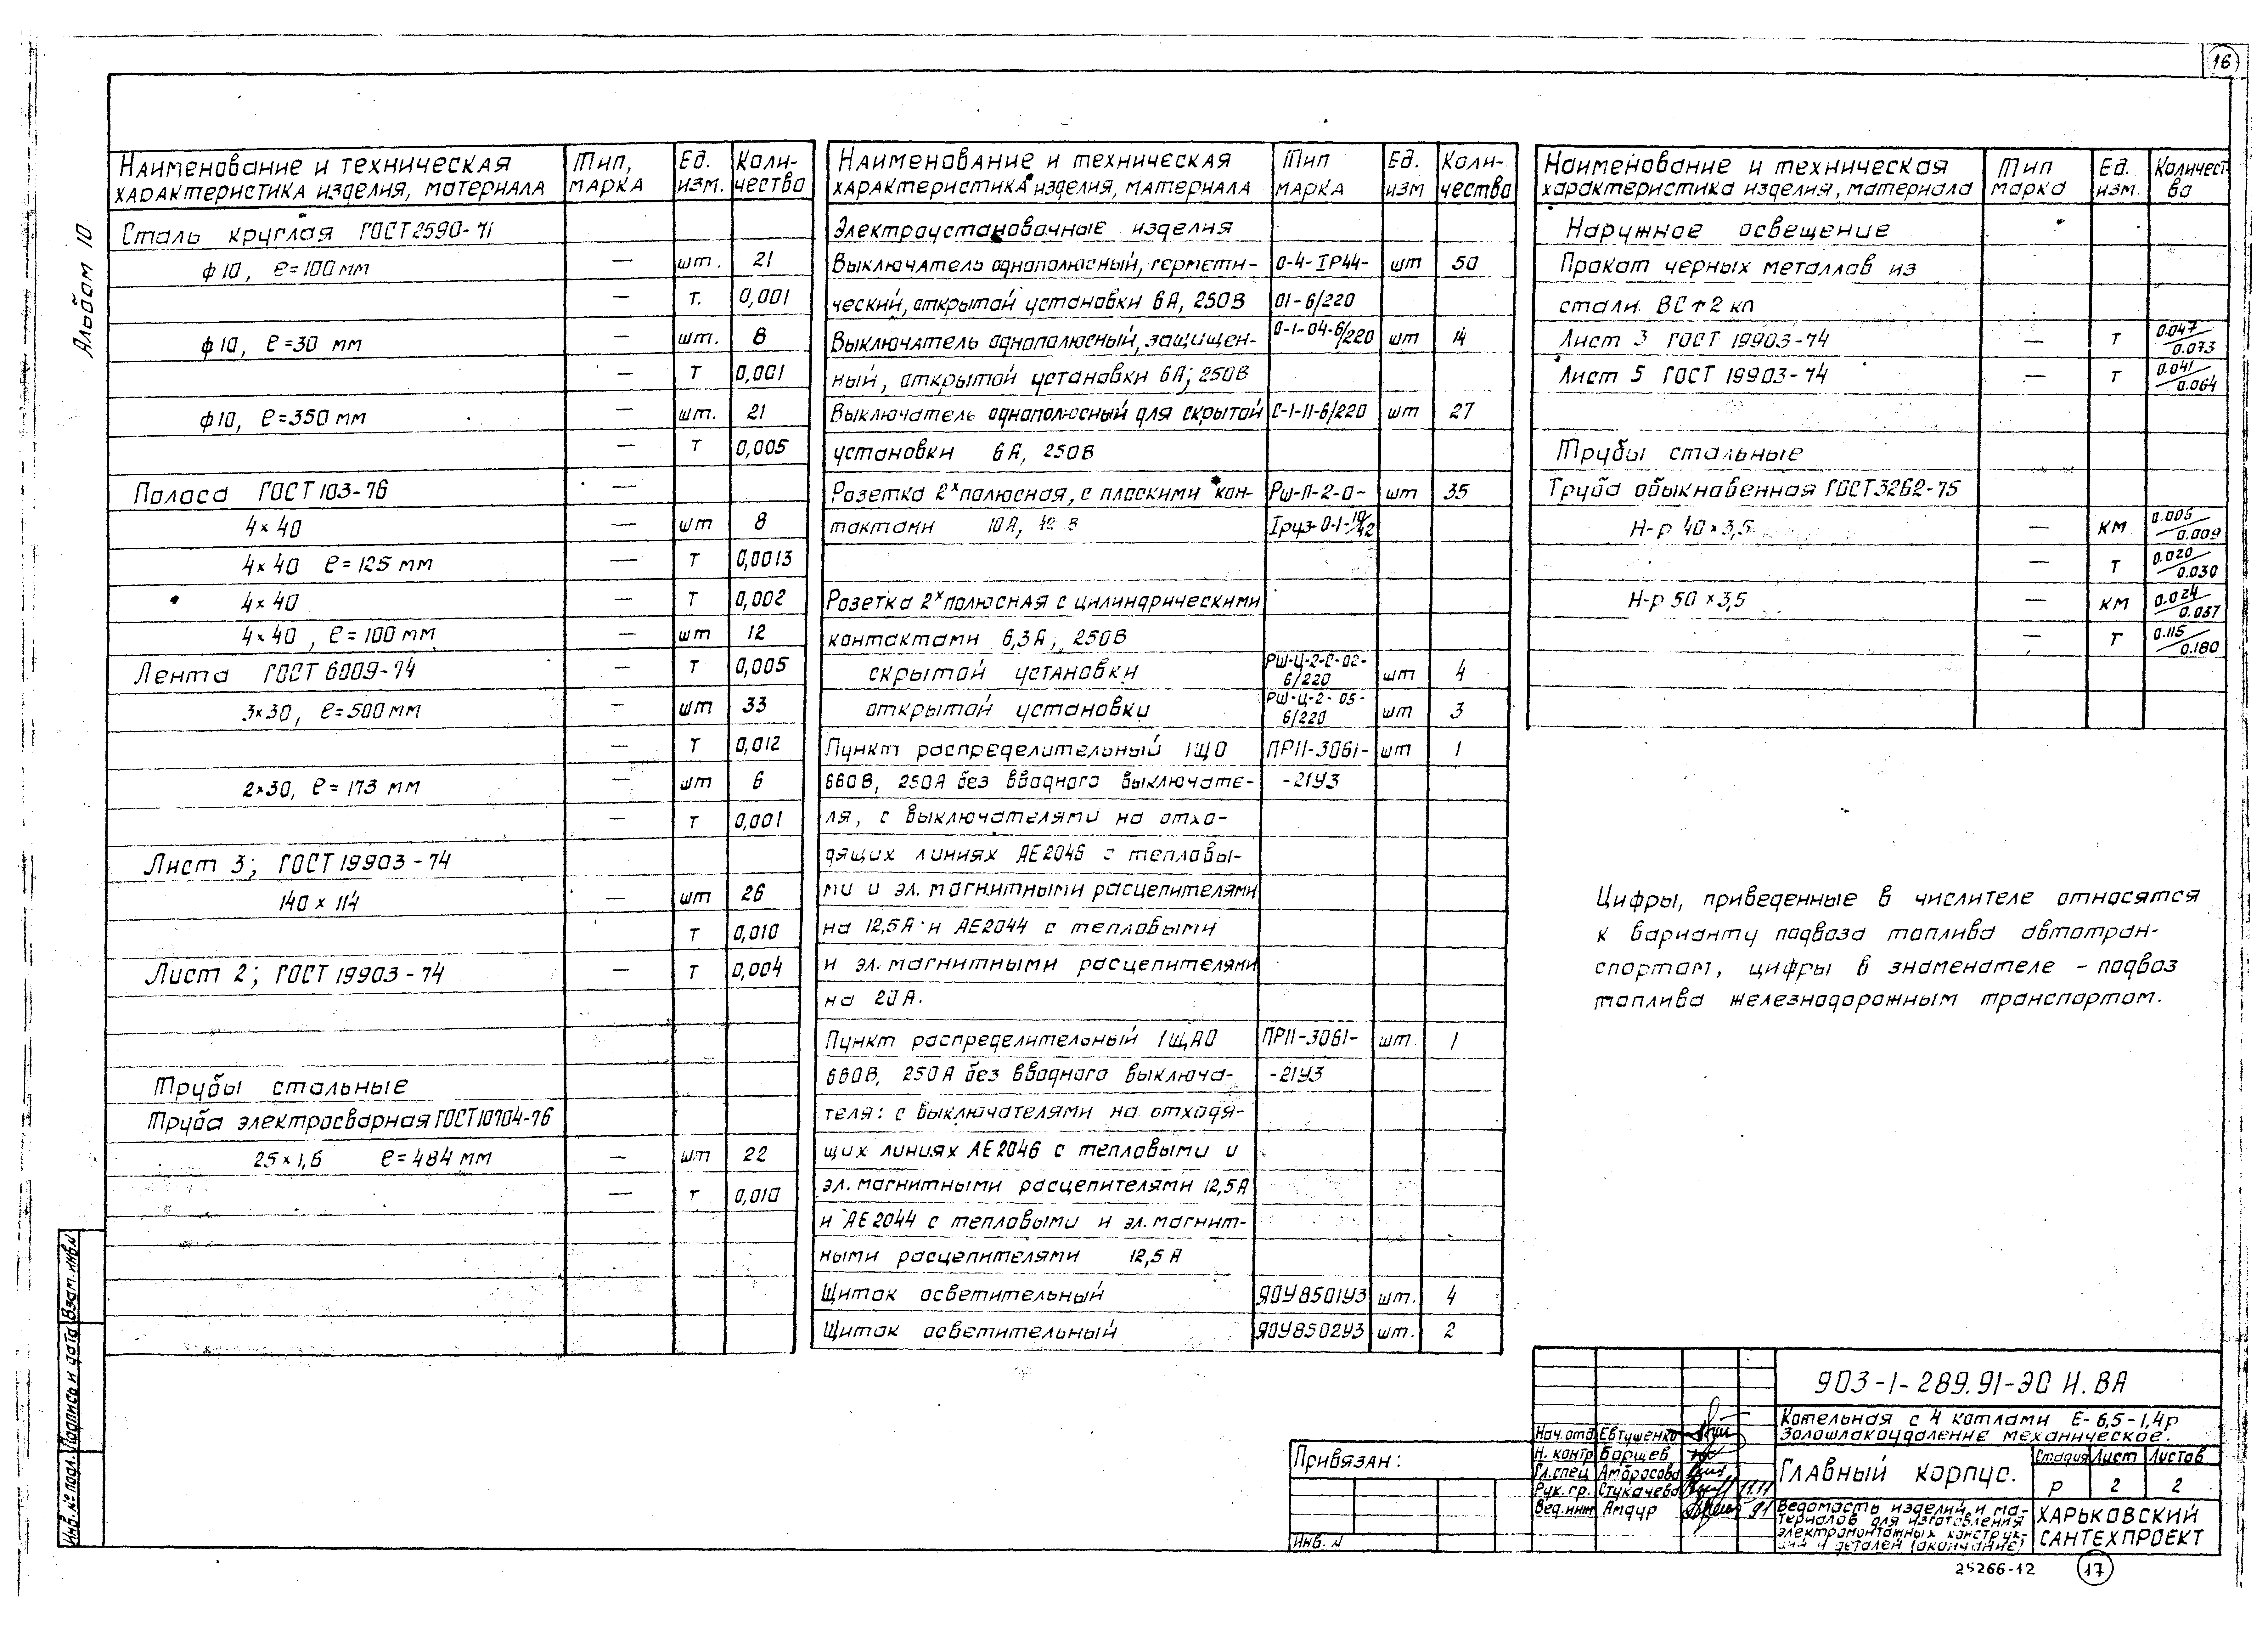 16
Альбом 10
Наименование и техническая характеристика изделия, материала | Тип, марка | Ед. изм. | Коли-чества
Сталь круглая ГОСТ 2590-71
ф10, ℓ=100 мм — шт. 21
— т. 0,001
ф10, ℓ=30 мм — шт. 8
— т 0,001
ф10, ℓ=350 мм — шт. 21
— т 0,005
Полоса ГОСТ 103-76 —
4×40 — шт 8
4×40 ℓ=125 мм — т 0,0013
4×40 — т 0,002
4×40, ℓ=100 мм — шт 12
Лента ГОСТ 6009-74 — т 0,005
3×30, ℓ=500 мм — шт 33
— т 0,012
2×30, ℓ=173 мм — шт 6
— т 0,001
Лист 3; ГОСТ 19903-74
140 × 114 — шт 26
т 0,010
Лист 2; ГОСТ 19903-74 — т 0,004
Трубы стальные
Труба электросварная ГОСТ 10704-76
25×1,6 ℓ=484 мм — шт 22
— т 0,010
Наименование и техническая характеристика изделия, материала | Тип марка | Ед. изм | Коли-чества
Электроустановочные изделия
Выключатель однополюсный, гермети- 0-4-IP44- шт 50
ческий, открытой установки 6А, 250В 01-6/220
Выключатель однополюсный, защищен- 0-1-04-6/220 шт 14
ный, открытой установки 6А, 250В
Выключатель однополюсный для скрытой С-1-11-6/220 шт 27
установки 6А, 250В
Розетка 2х полюсная, с плоскими кон- Рш-П-2-0- шт 35
тактами 10А, 42 в 0-1-10/42
Розетка 2х полюсная с цилиндрическими
контактами 6,3А, 250В
скрытой установки РШ-Ц-2-С-02-6/220 шт 4
открытой установки РШ-Ц-2-05-6/220 шт 3
Пункт распределительный 1ЩО ПР11-3061- шт 1
660В, 250А без вводного выключате- -21У3
ля, с выключателями на отхо-
дящих линиях АЕ2046 с тепловы-
ми и эл. магнитными расцепителями
на 12,5А и АЕ2044 с тепловыми
и эл. магнитными расцепителями
на 20А.
Пункт распределительный 1ЩАО ПР11-3061- шт. 1
660В, 250А без вводного выключа- -21У3
теля: с выключателями на отходя-
щих линиях АЕ2046 с тепловыми и
эл. магнитными расцепителями 12,5А
и АЕ2044 с тепловыми и эл. магнит-
ными расцепителями 12,5А
Щиток осветительный ЯОУ8501У3 шт. 4
Щиток осветительный ЯОУ8502У3 шт. 2
Наименование и техническая характеристика изделия, материала | Тип марка | Ед. изм. | Количест-ва
Наружное освещение
Прокат черных металлов из
стали ВСт2 кп
Лист 3 ГОСТ 19903-74 — т 0.047/0.073
Лист 5 ГОСТ 19903-74 — т 0.041/0.064
Трубы стальные
Труба обыкновенная ГОСТ 3262-75
Н-р 40×3,5 — км 0.005/0.009
— т 0.020/0.030
Н-р 50×3,5 — км 0.024/0.037
— т 0.115/0.180
Цифры, приведенные в числителе относятся
к варианту подвоза топлива автотран-
спортом, цифры в знаменателе - подвоз
топлива железнодорожным транспортом.
Инв. № подл. Подпись и дата Взам. инв. №
Привязан:
Инв. №
Нач. отд Евтушенко
Н. контр Борщев
Гл. спец Амбросова
Рук. гр. Стукачева 11.11
Вед. инж Амдур 91
903-1-289.91-ЭО И.ВА
Котельная с 4 котлами Е-6,5-1,4р
Золошлакоудаление механическое.
Главный корпус.
Стадия Лист Листов
р 2 2
Ведомость изделий и ма-
териалов для изготовления
электромонтажных конструк-
ций и деталей (окончание)
ХАРЬКОВСКИЙ
САНТЕХПРОЕКТ
25266-12 17